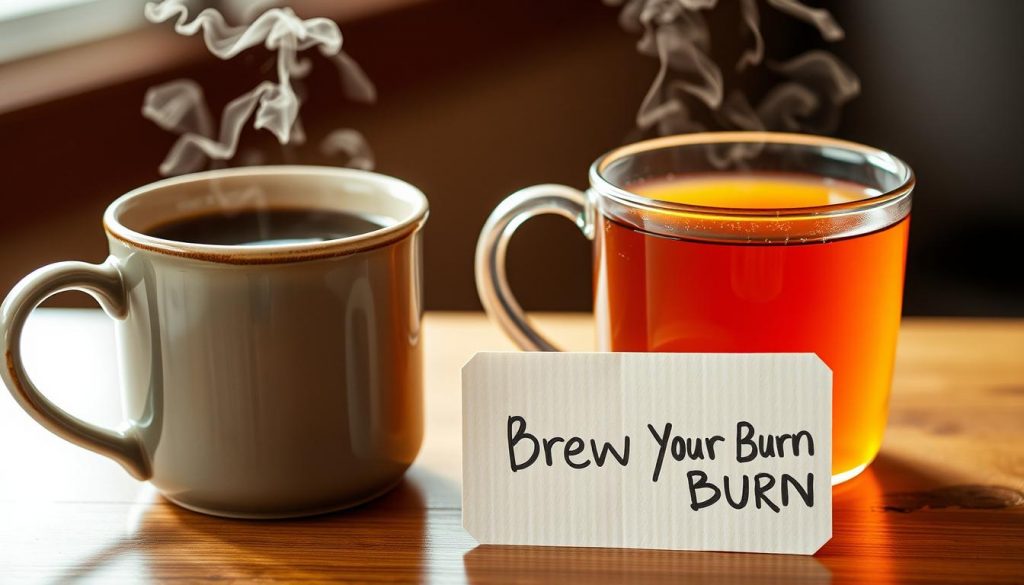 Brew Your Burn
BURN